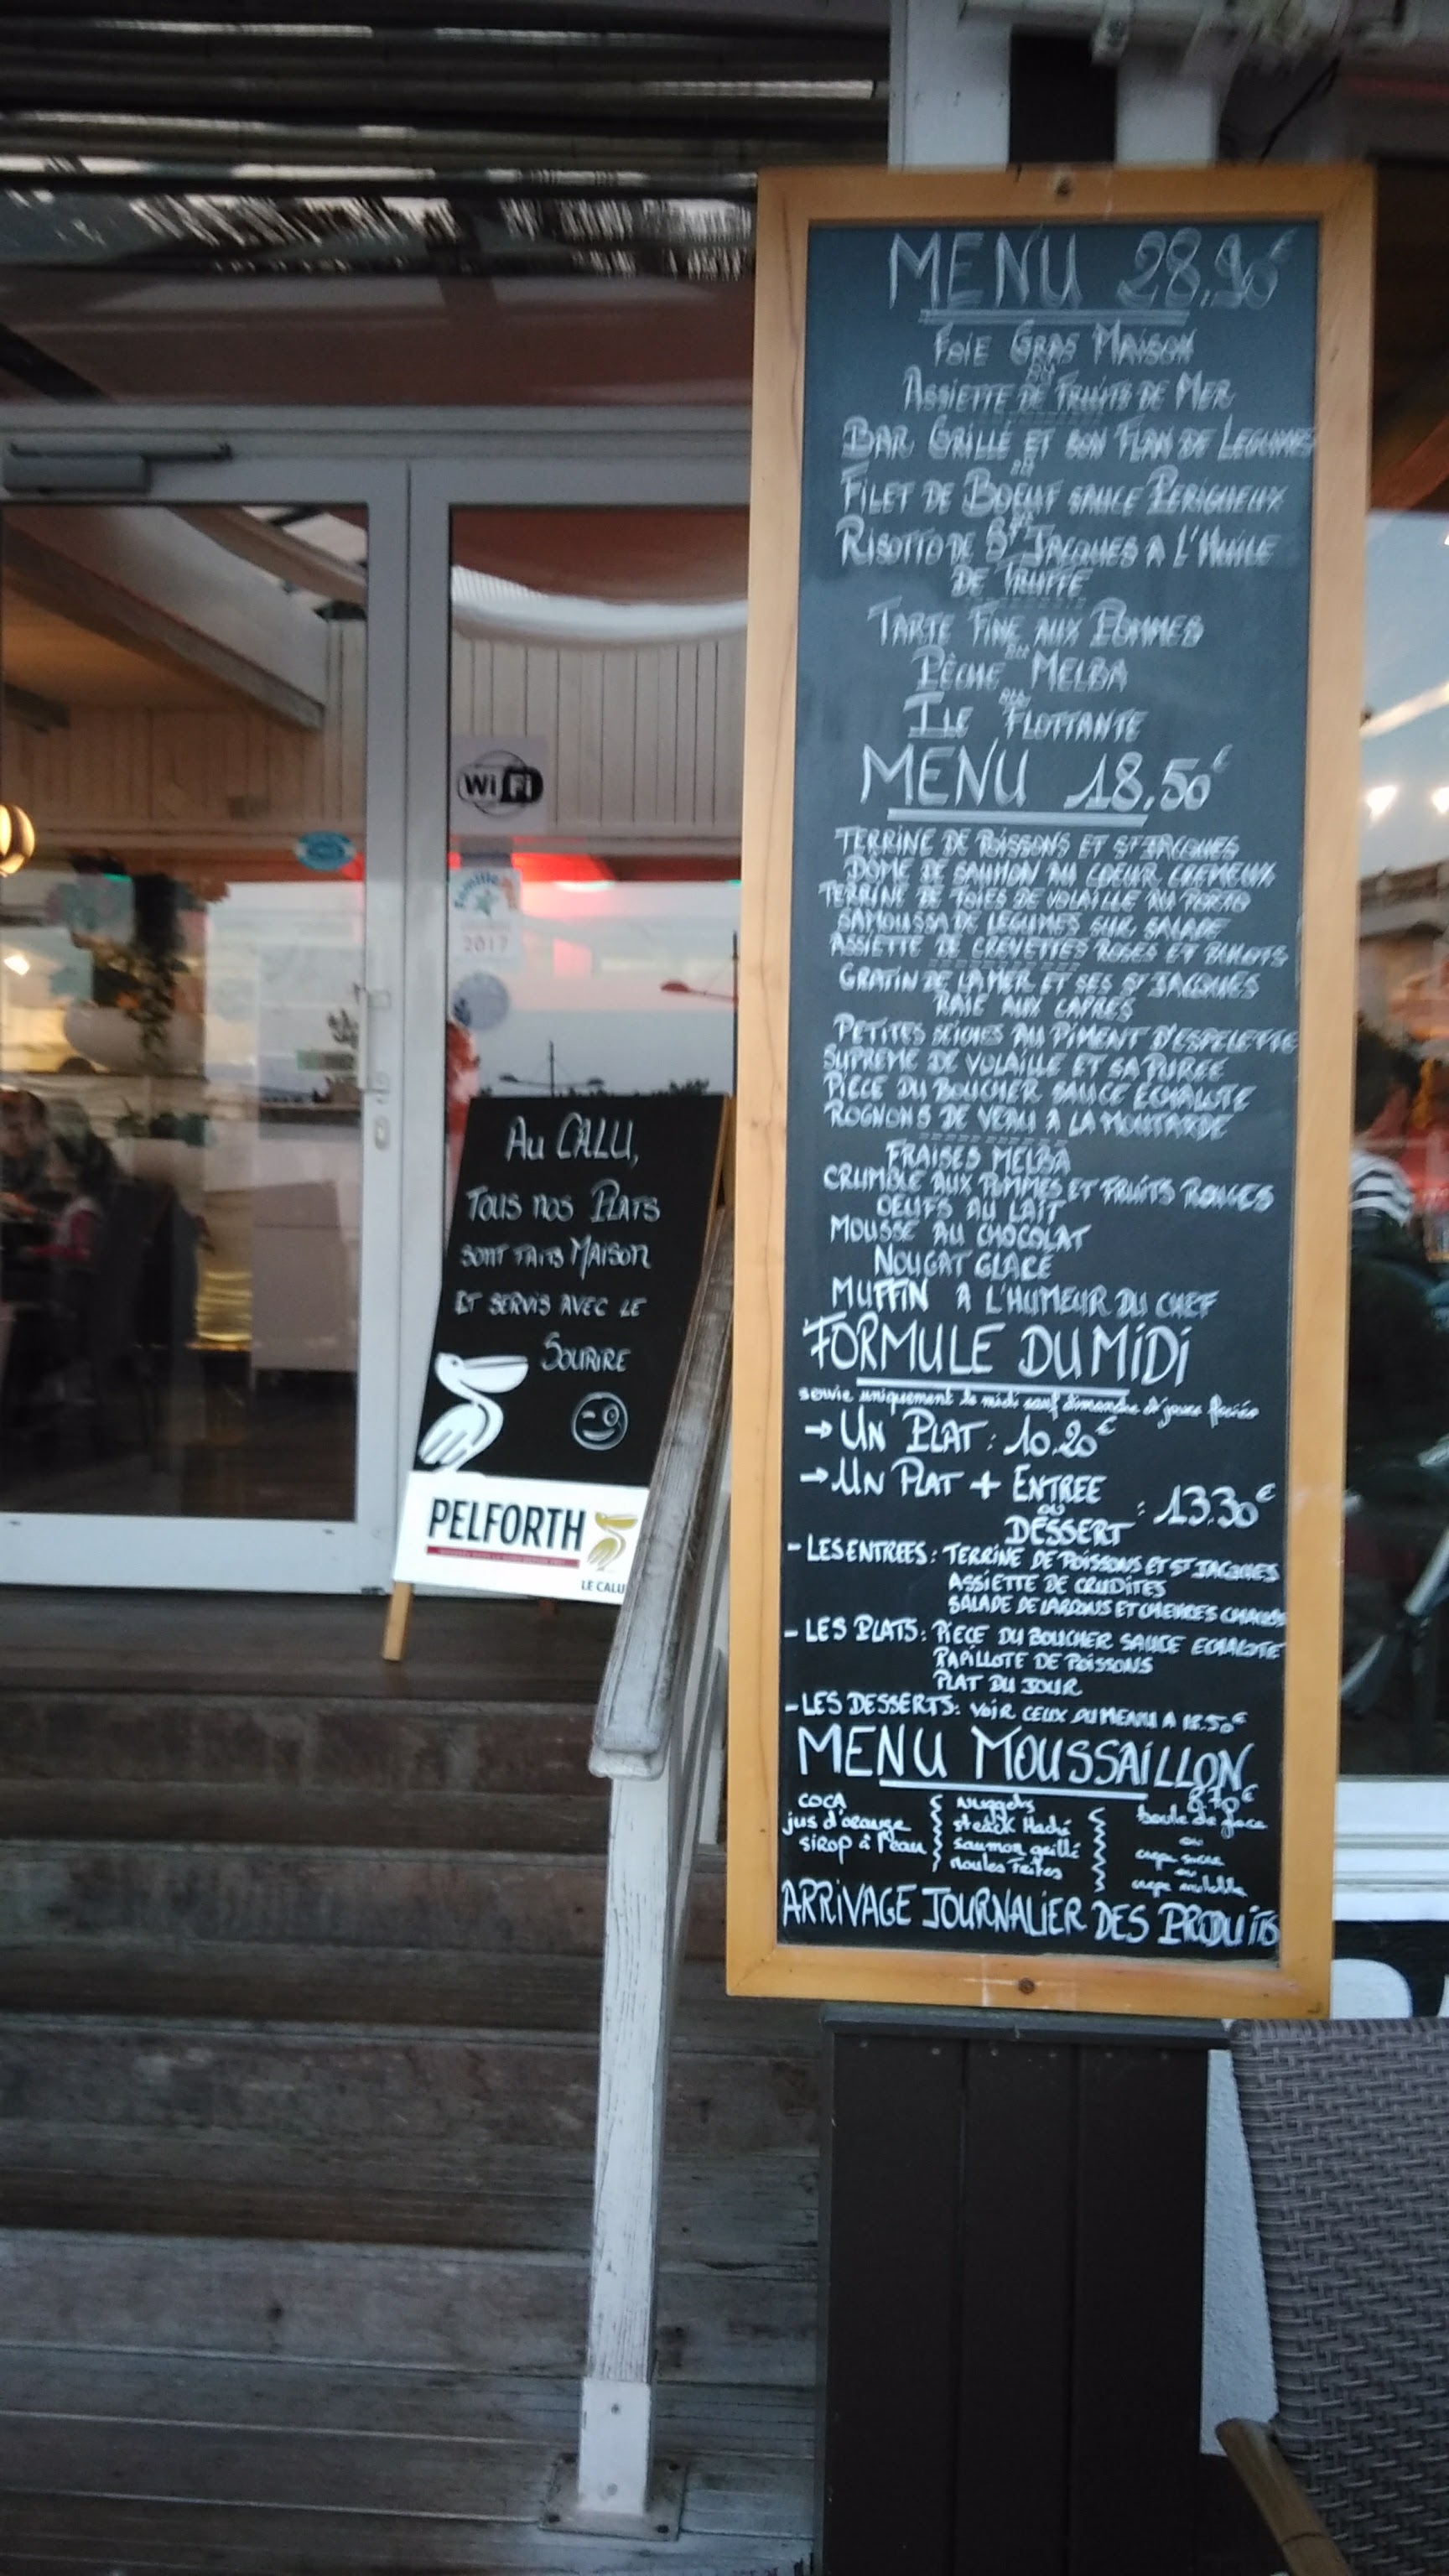 MENU 28,90€
FOIE GRAS MAISON
OU
ASSIETTE DE FRUITS DE MER
BAR GRILLÉ ET SON FLAN DE LEGUMES
OU
FILET DE BOEUF SAUCE PERIGUEUX
OU
RISOTTO DE ST JACQUES A L'HUILE
DE TRUFFE
TARTE FINE AUX POMMES
OU
PÊCHE MELBA
OU
ILE FLOTTANTE
MENU 18,50€
TERRINE DE POISSONS ET ST JACQUES
DOME DE SAUMON AU COEUR CREMEUX
TERRINE DE FOIES DE VOLAILLE AU PORTO
SAMOUSSA DE LEGUMES SUR SALADE
ASSIETTE DE CREVETTES ROSES ET BULOTS
GRATIN DE LA MER ET SES ST JACQUES
RAIE AUX CAPRES
PETITES SEICHES AU PIMENT D'ESPELETTE
SUPREME DE VOLAILLE ET SA PUREE
PIECE DU BOUCHER SAUCE ECHALOTE
ROGNONS DE VEAU A LA MOUTARDE
FRAISES MELBA
CRUMBLE AUX POMMES ET FRUITS ROUGES
OEUFS AU LAIT
MOUSSE AU CHOCOLAT
NOUGAT GLACE
MUFFIN A L'HUMEUR DU CHEF
FORMULE DU MIDI
servie uniquement le midi sauf dimanche et jours fériés
→ UN PLAT : 10.20€
→ UN PLAT + ENTREE
OU
DESSERT : 13.30€
- LES ENTREES : TERRINE DE POISSONS ET ST JACQUES
ASSIETTE DE CRUDITES
SALADE DE LARDONS ET CHEVRES CHAUDS
- LES PLATS : PIECE DU BOUCHER SAUCE ECHALOTE
PAPILLOTE DE POISSONS
PLAT DU JOUR
- LES DESSERTS : VOIR CEUX DU MENU A 18.50€
MENU MOUSSAILLON
8,70€
COCA
jus d'orange
sirop à l'eau
Nuggets
steack Haché
saumon grillé
Moules Frites
boule de glace
ou
crepe sucre
ou
crepe nutella
ARRIVAGE JOURNALIER DES PRODUITS
WiFi
famille
2017
AU CALU,
TOUS NOS PLATS
SONT FAITS MAISON
ET SERVIS AVEC LE
SOURIRE
PELFORTH
LE CALU